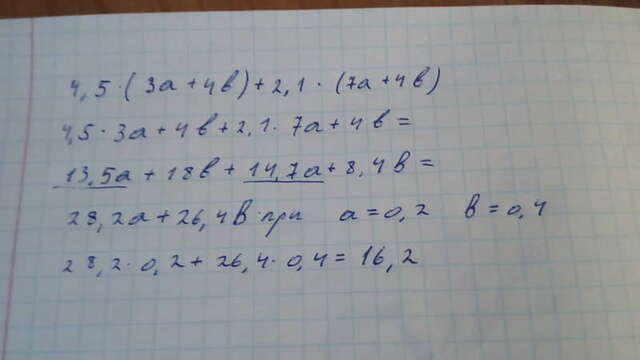 4,5·(3a+4в)+2,1·(7a+4в)
4,5·3a+4в+2,1·7a+4в=
13,5a+18в+14,7a+8,4в=
28,2a+26,4в при a=0,2 в=0,4
28,2·0,2+26,4·0,4=16,2